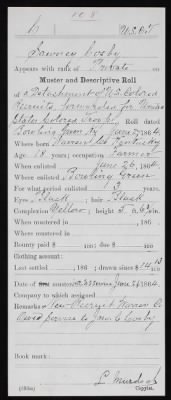 C | U.S.C.T.
Cosby
Appears with rank of Private on
Muster and Descriptive Roll
of a Detachment of U.S. Colored
Recruits forwarded for United
States Colored Troops. Roll dated
Bowling Green Ky June 27, 1864.
Where born Warren Co Kentucky
Age 18 years; occupation Farmer
When enlisted June 26, 1864.
Where enlisted Bowling Green
For what period enlisted 3 years.
Eyes Black; hair Black
Complexion Yellow; height 5 ft. in.
When mustered in , 186 .
Where mustered in
Bounty paid $ 100; due $ 100
Clothing account:
Last settled , 186 ; drawn since $
Date of muster June 26, 1864.
Company to which assigned
Remarks: New Recruit Warren Co
Owed Service to Jno. C. Cosby
Book mark:
Copyist.